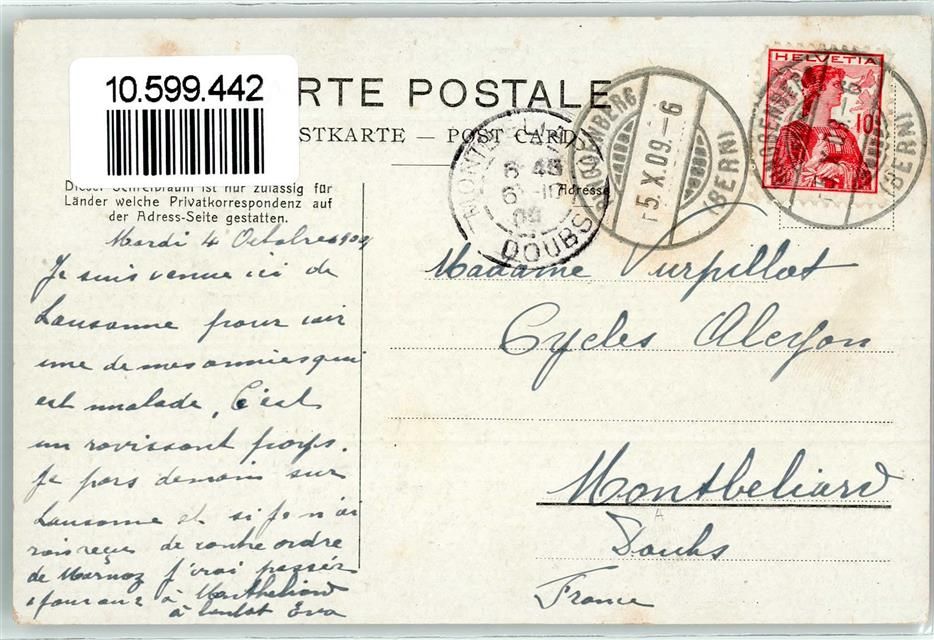 10.599.442
RTE POSTALE
STKARTE — POST CARD
Dieser Schreibraum ist nur zulässig für
Länder welche Privatkorrespondenz auf
der Adress-Seite gestatten.
Adresse
HELVETIA
10
5.X.09.-6
(BERN)
DOUBS
Mardi 4 Octobre 1909
Je suis venue ici de
Lausanne pour voir
une de mes amies qui
est malade, C'est
un ravissant pays.
Je pars demain sur
Lausanne et si je n'ai
rien reçu de contre ordre
de j'irai passer
1 jour à Montbeliard
à bientot Eva
Madame Vurpillot
Cycles Alcyon
Montbeliard
Doubs
France